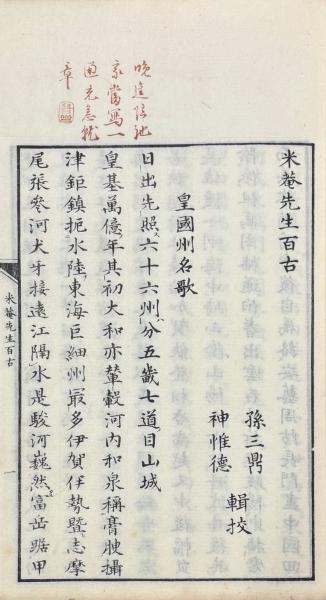 晚進臨池
家當寫一
通充急就
章
米菴先生百古
孫三鼎
神惟德
輯挍
皇國州名歌
日出先照六十六州分五畿七道自山城
皇基萬億年其初大和亦輦轂河內和泉稱膏腴攝
津鉅鎮扼水陸東海巨細州最多伊賀伊勢曁志摩
尾張參河犬牙接遠江隔水是駿河巍然富岳踞甲
米菴先生百古
一